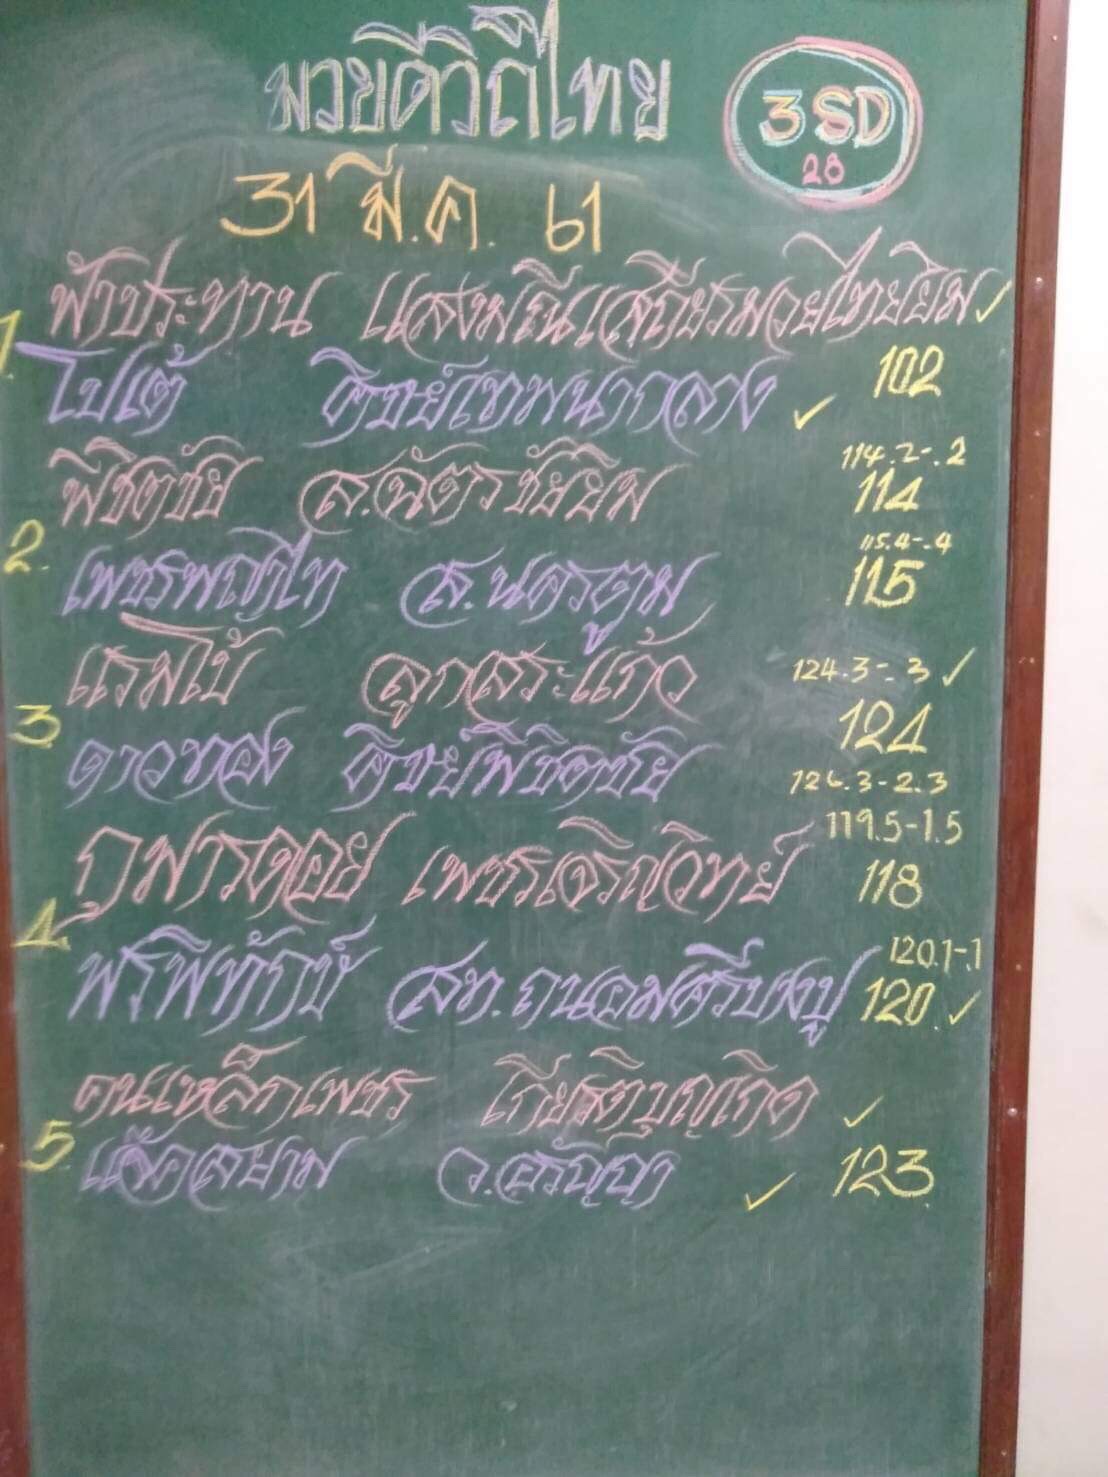 มวยดีวิถีไทย
3 SD
28
31 มี.ค. 61
1. ฟ้าประทาน แสงมณีเสถียรมวยไทยยิม ✓
โปเต้ ศิษย์เทพนากลาง ✓ 102
114.2-.2
พิชิตชัย ส.ฉัตรชัยยิม 114
2. 115.4-.4
เพชรพญาไท ส.นครตูม 115
แรมโบ้ ลูกสระแก้ว 124.3-.3 ✓
3. 124
ดาวทอง ศิษย์พิชิตชัย 126.3-2.3
119.5-1.5
กุมารดอย เพชรเจริญวิทย์ 118
4. 120.1-.1
พรพิทักษ์ สท.ถนอมศรีบางปู 120 ✓
คนเหล็กเพชร เกียรติบุญเกิด ✓
5. เสือสยาม ว.อรัญญา ✓ 123